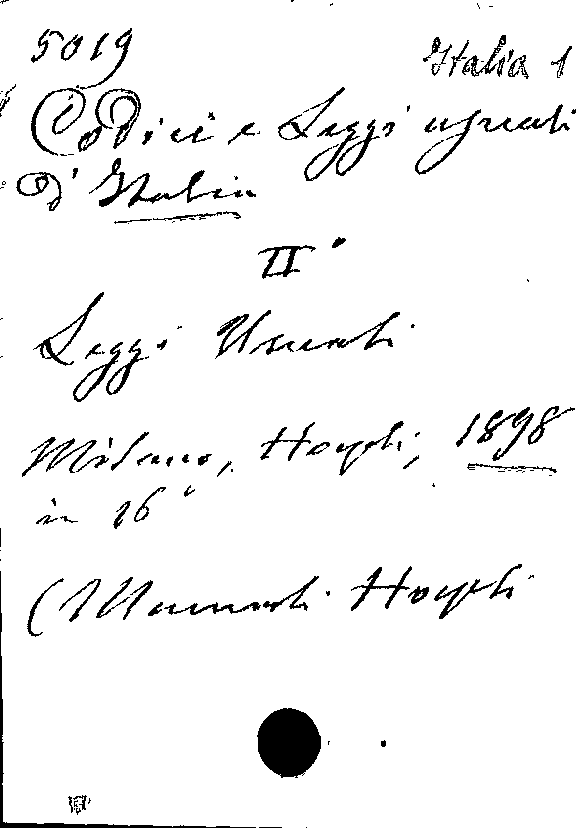 5019
Italia 1
Codici e Leggi usuali
d'Italia
II°
Leggi Usuali
Milano, Hoepli, 1898
in 16°
(Manuali Hoepli